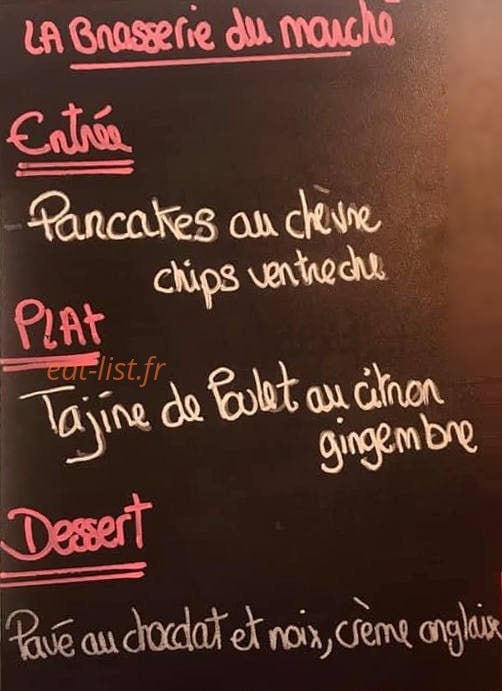 LA Brasserie du marché
Entrée
Pancakes au chèvre
chips ventreche
PLAt
eat-list.fr
Tajine de Poulet au citron
gingembre
Dessert
Pavé au chocolat et noix, crème anglaise